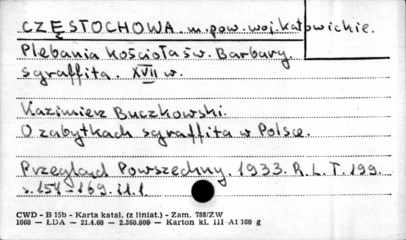 CZĘSTOCHOWA. m. pow. woj. katowickie.
Plebania kościoła św. Barbary.
sgraffita. XVII w.
Kazimierz Buczkowski.
O zabytkach sgraffita w Polsce.
Przegląd Powszechny. 1933. R. L. T. 199.
s. 154-169. il. 1
CWD - B 15b - Karta katal. (z liniat.) - Zam. 788/ZW
1060 — ŁDA — 21.4.60 - 2.360.000 — Karton kl. III A1 180 g